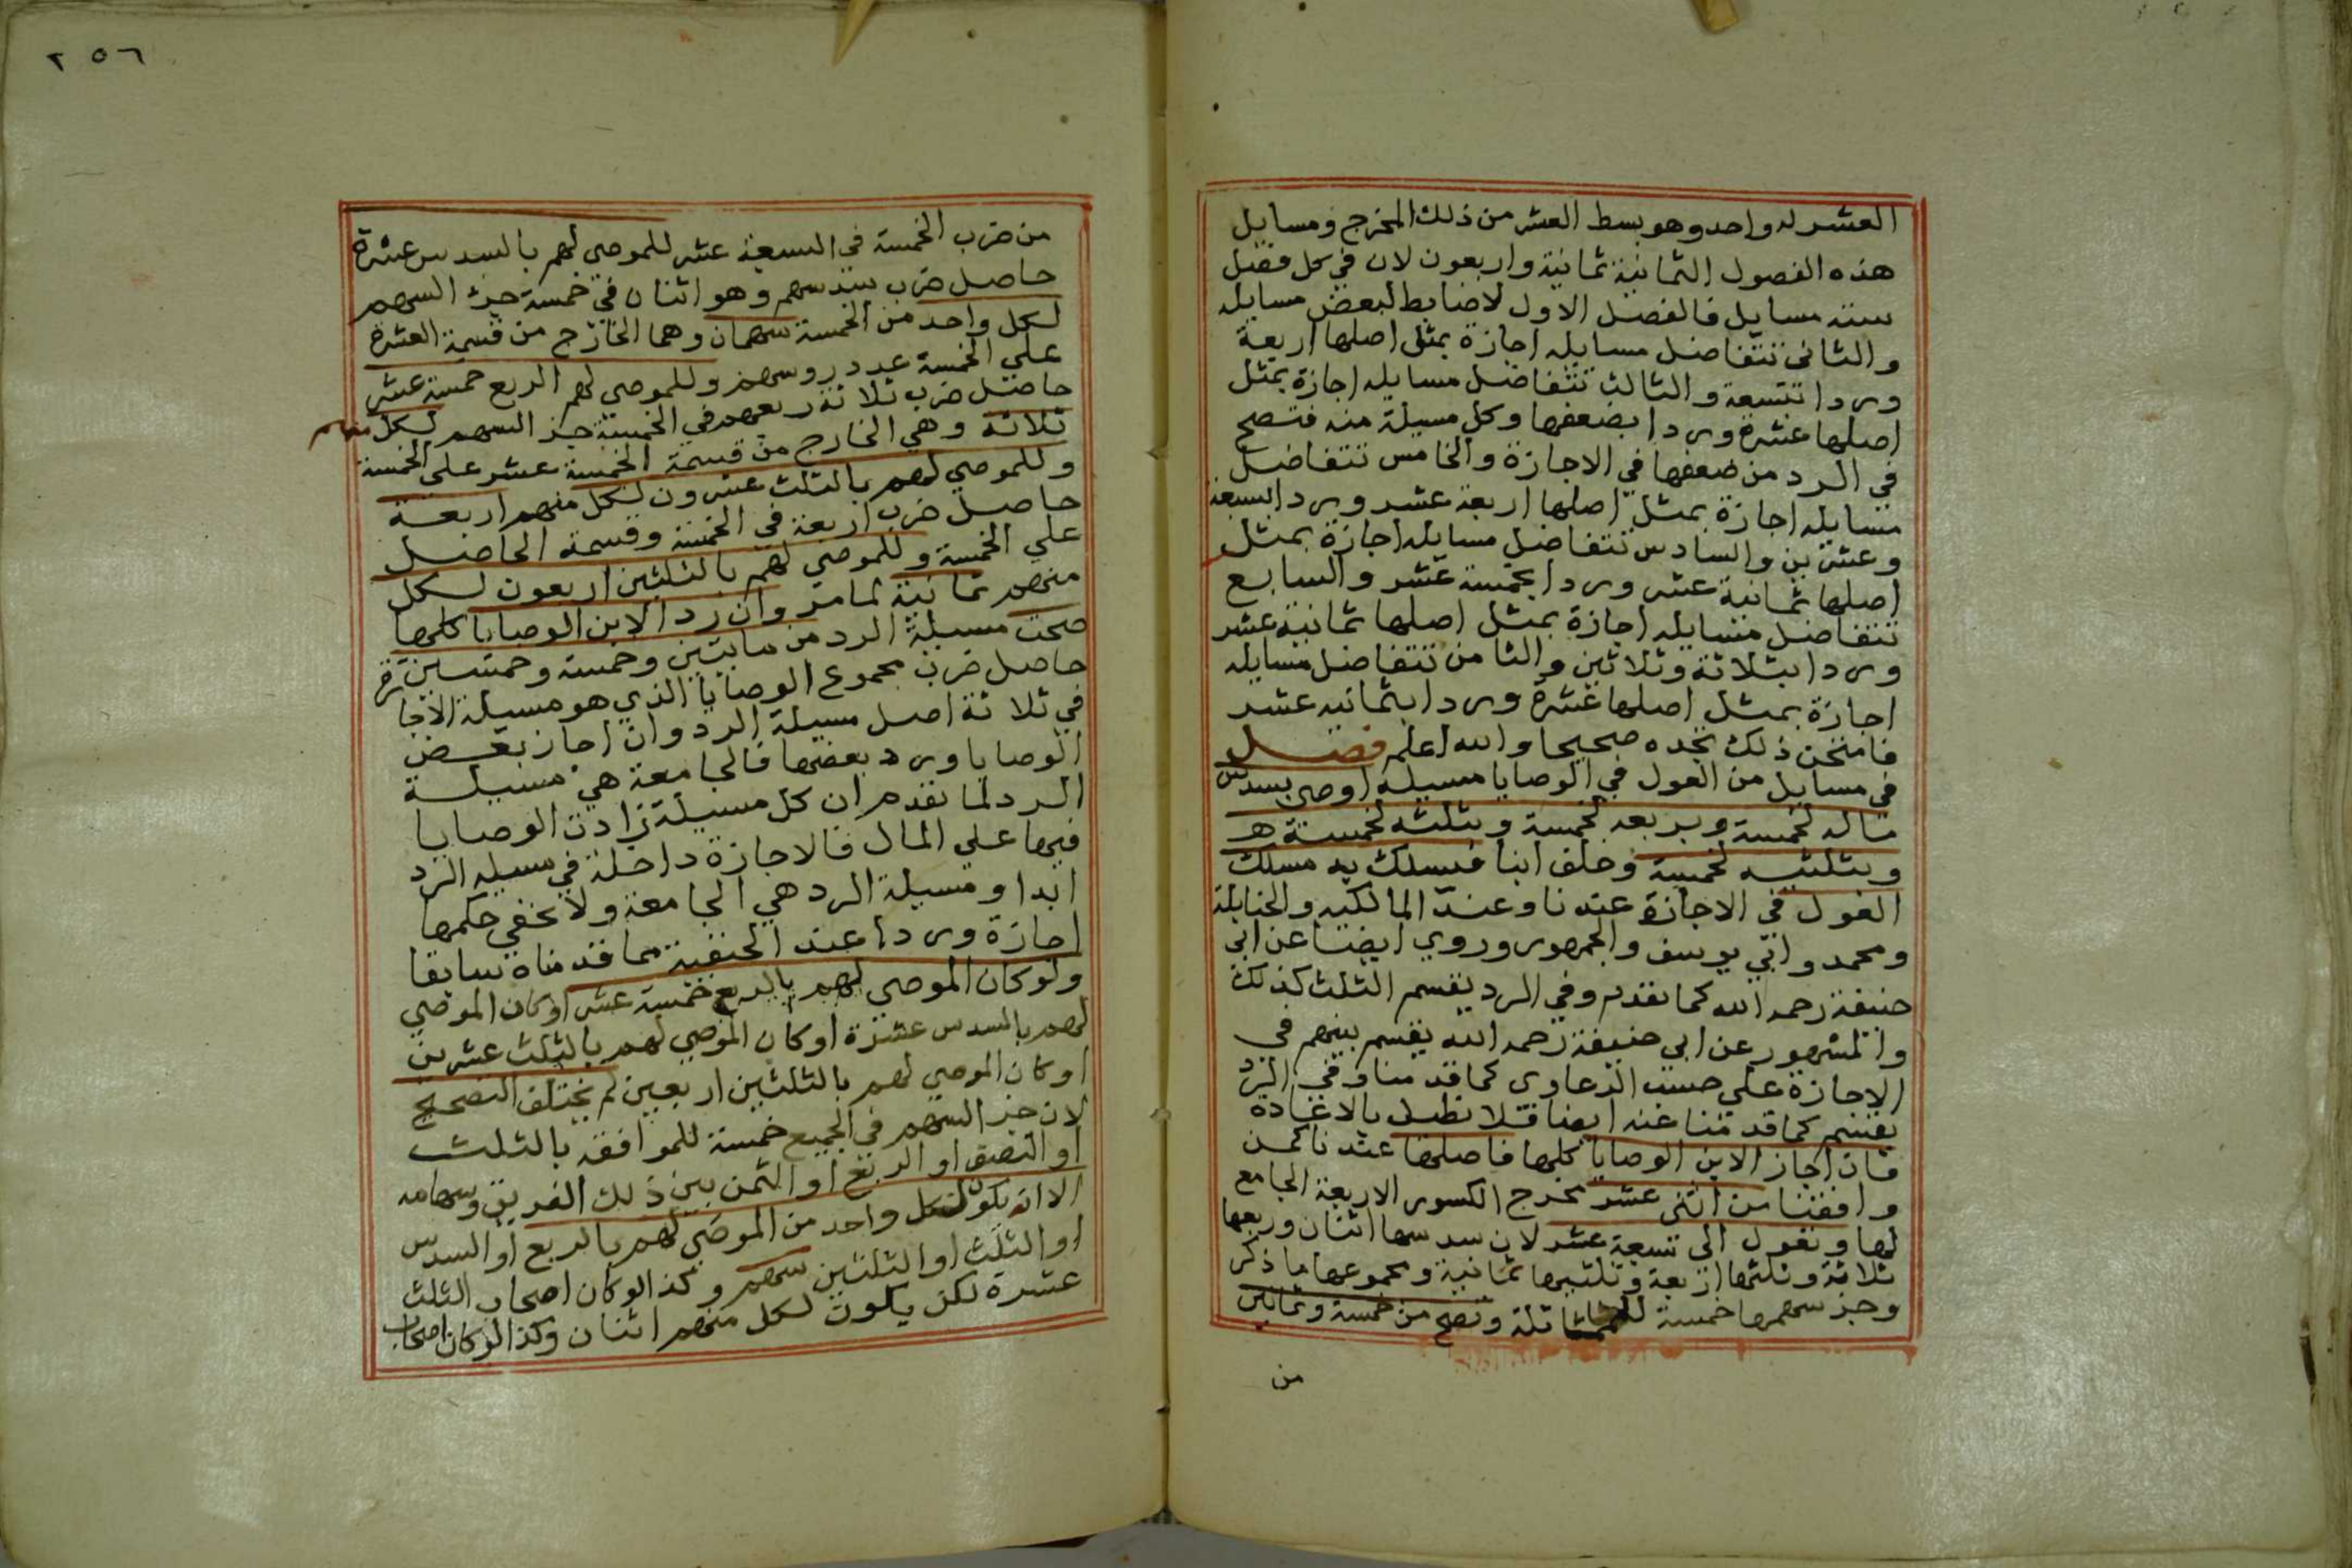 العشر له واحد وهو بسط العشر من ذلك المخرج ومسايل
هذه الفصول الثمانية ثمانية واربعون لان في كل فصل
ستة مسايل فالفصل الاول لا ضابط لبعض مسايله
والثاني تتفاضل مسايله اجازة بمثلي اصلها اربعة
وردا بتسعة والثالث تتفاضل مسايله اجازة بمثل
اصلها عشرة وردا بضعفها وكل مسيلة منه فتصح
في الرد من ضعفها في الاجازة والخامس تتفاضل
مسايله اجازة بمثل اصلها اربعة عشر وردا بسبعة
وعشرين والسادس تتفاضل مسايله اجازة بمثل
اصلها ثمانية عشر وردا بخمسة عشر والسابع
تتفاضل مسايله اجازة بمثل اصلها ثمانية عشر
وردا بثلاثة وثلاثين والثامن تتفاضل مسايله
اجازة بمثل اصلها عشرة وردا بثمانية عشر
فامتحن ذلك تجده صحيحا والله اعلم فصل
في مسايل من العول في الوصايا مسيله اوصى بسدس
ماله لخمسة وبربعه لخمسة وبثلثه لخمسة
وبثلثيه لخمسة وخلف ابنا فيسلك به مسلك
العول في الاجازة عندنا وعند المالكيه والحنابلة
ومحمد وابي يوسف والجمهور وروي ايضا عن ابي
حنيفة رحمه الله كما تقدم وفي الرد يقسم الثلث كذلك
والمشهور عن ابي حنيفة رحمه الله يقسم بينهم في
الاجازة على حسب الدعاوي كما قدمنا وفي الرد
يقسم كما قدمنا عنه ايضا فلا نطيل بالاعادة
فان اجاز الابن الوصايا كلها فاصلها عندنا كمن
وافقنا من اثني عشر مخرج الكسور الاربعة الجامع
لها وتعول الى تسعة عشر لان سدسها اثنان وربعها
ثلاثة وثلثها اربعة وثلثيها ثمانية ومجموعها ما ذكر
وجز سهمها خمسة للمماثلة وتصح من خمسة وثمانين
من
٢٥٦
من ضرب الخمسة في السبعة عشر للموصى لهم بالسدس عشرة
حاصل ضرب سدسهم وهو اثنان في خمسة جز السهم
لكل واحد من الخمسة سهمان وهما الخارج من قسمة العشرة
على الخمسة عدد روسهم وللموصى لهم الربع خمسة عشر
حاصل ضرب ثلاثة ربعهم في الخمسة جز السهم لكل منهم
ثلاثة وهي الخارج من قسمة الخمسة عشر على الخمسة
وللموصي لهم بالثلث عشرون لكل منهم اربعة
حاصل ضرب اربعة في الخمسة وقسمة الحاصل
على الخمسة وللموصي لهم بالثلثين اربعون لكل
منهم ثمانية لما مر وان رد الابن الوصايا كلها
صحت مسيلة الرد من مايتين وخمسة وخمسين
حاصل ضرب مجموع الوصايا الذي هو مسيلة الاجازة
في ثلاثة اصل مسيلة الرد وان اجاز بعض
الوصايا ورد بعضها فالجامعة هي مسيلة
الرد لما تقدم ان كل مسيلة زادت الوصايا
فيها على المال فالاجازة داخلة في مسيله الرد
ابدا ومسيلة الرد هي الجامعة ولا يخفي حكمها
اجازة وردا عند الحنفية مما قدمناه سابقا
ولو كان الموصي لهم بالربع خمسة عشر او كان الموصي
لهم بالسدس عشرة او كان الموصي لهم بالثلث عشرين
او كان الموصي لهم بالثلثين اربعين لم يختلف التصحيح
لان جز السهم في الجميع خمسة للموافقه بالثلث
او النصف او الربع او الثمن بين ذلك الفريق وسهامه
الا انه يكون لكل واحد من الموصي لهم بالربع او السدس
او الثلث او الثلثين سهم وكذا لو كان اصحاب الثلث
عشرة لكن يكون لكل منهم اثنان وكذا لو كان اصحاب